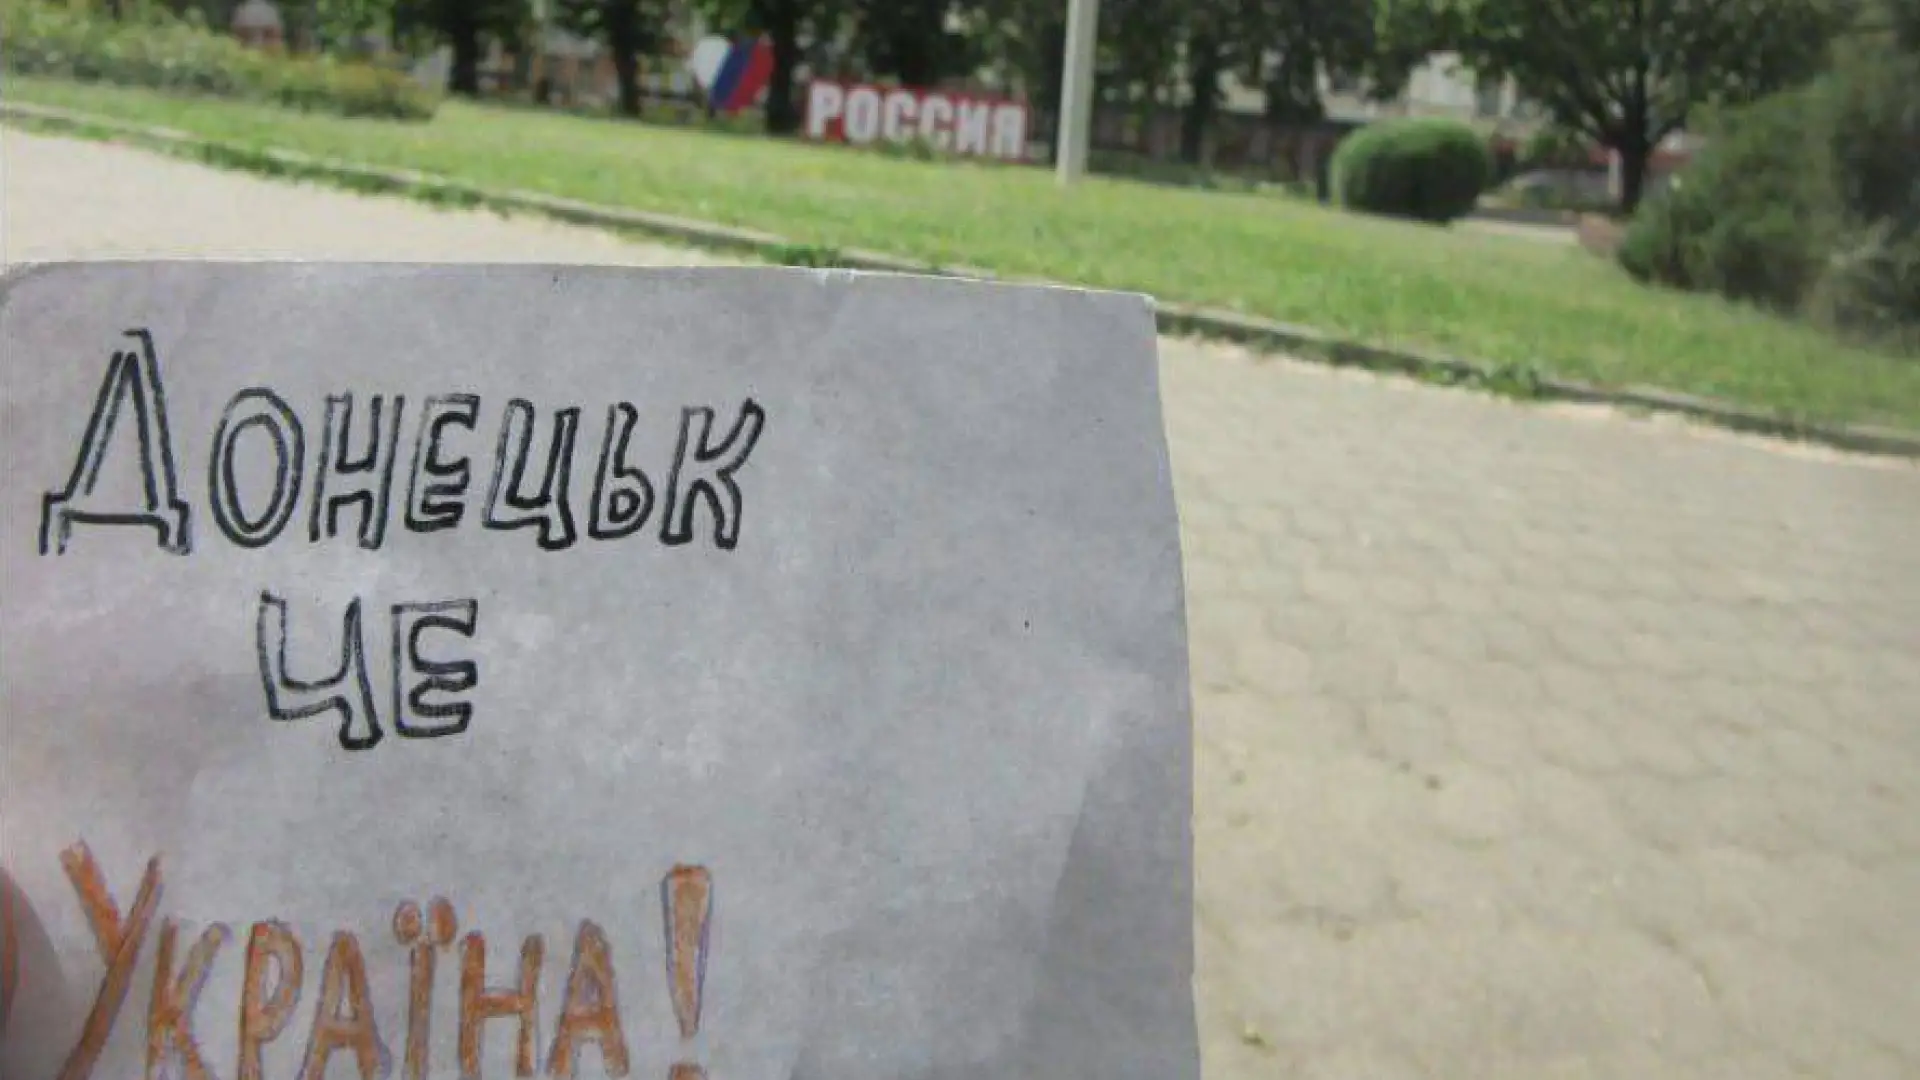 РОССИЯ
Донецьк
це
Україна!